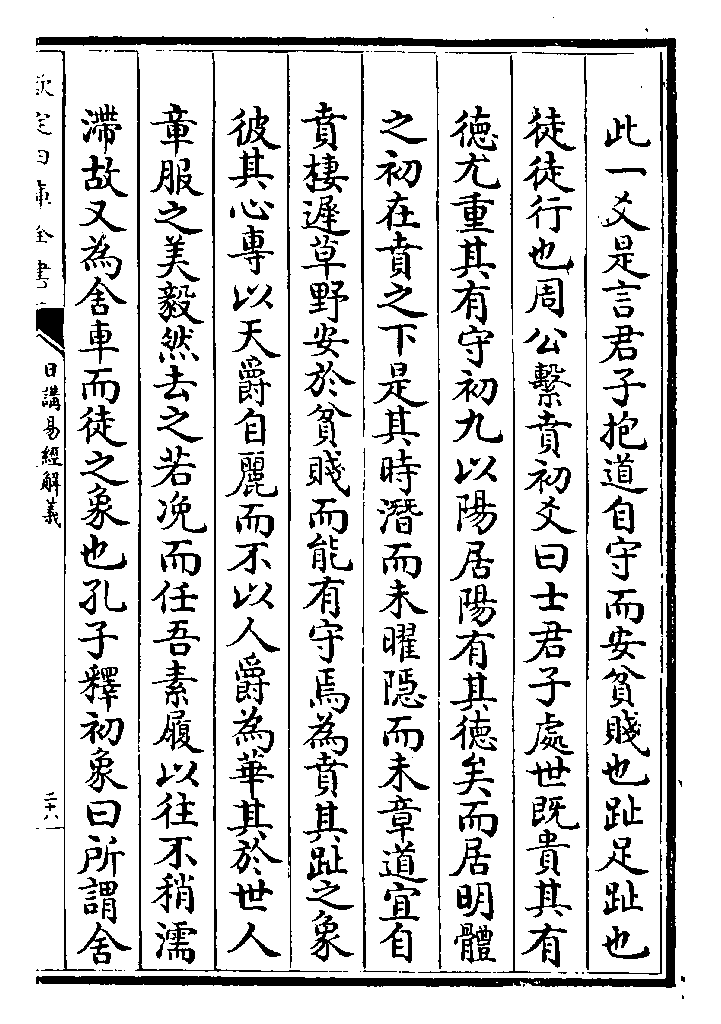 此一爻是言君子抱道自守而安貧賤也趾足趾也
徒徒行也周公繫賁初爻曰士君子處世既貴其有
德尤重其有守初九以陽居陽有其德矣而居明體
之初在賁之下是其時潛而未曜隱而未章道宜自
賁棲遲草野安於貧賤而能有守焉為賁其趾之象
彼其心專以天爵自麗而不以人爵為華其於世人
章服之美毅然去之若浼而任吾素履以往不稍濡
滯故又為舍車而徒之象也孔子釋初象曰所謂舍
欽定四庫全書
日講易經解義
二十六